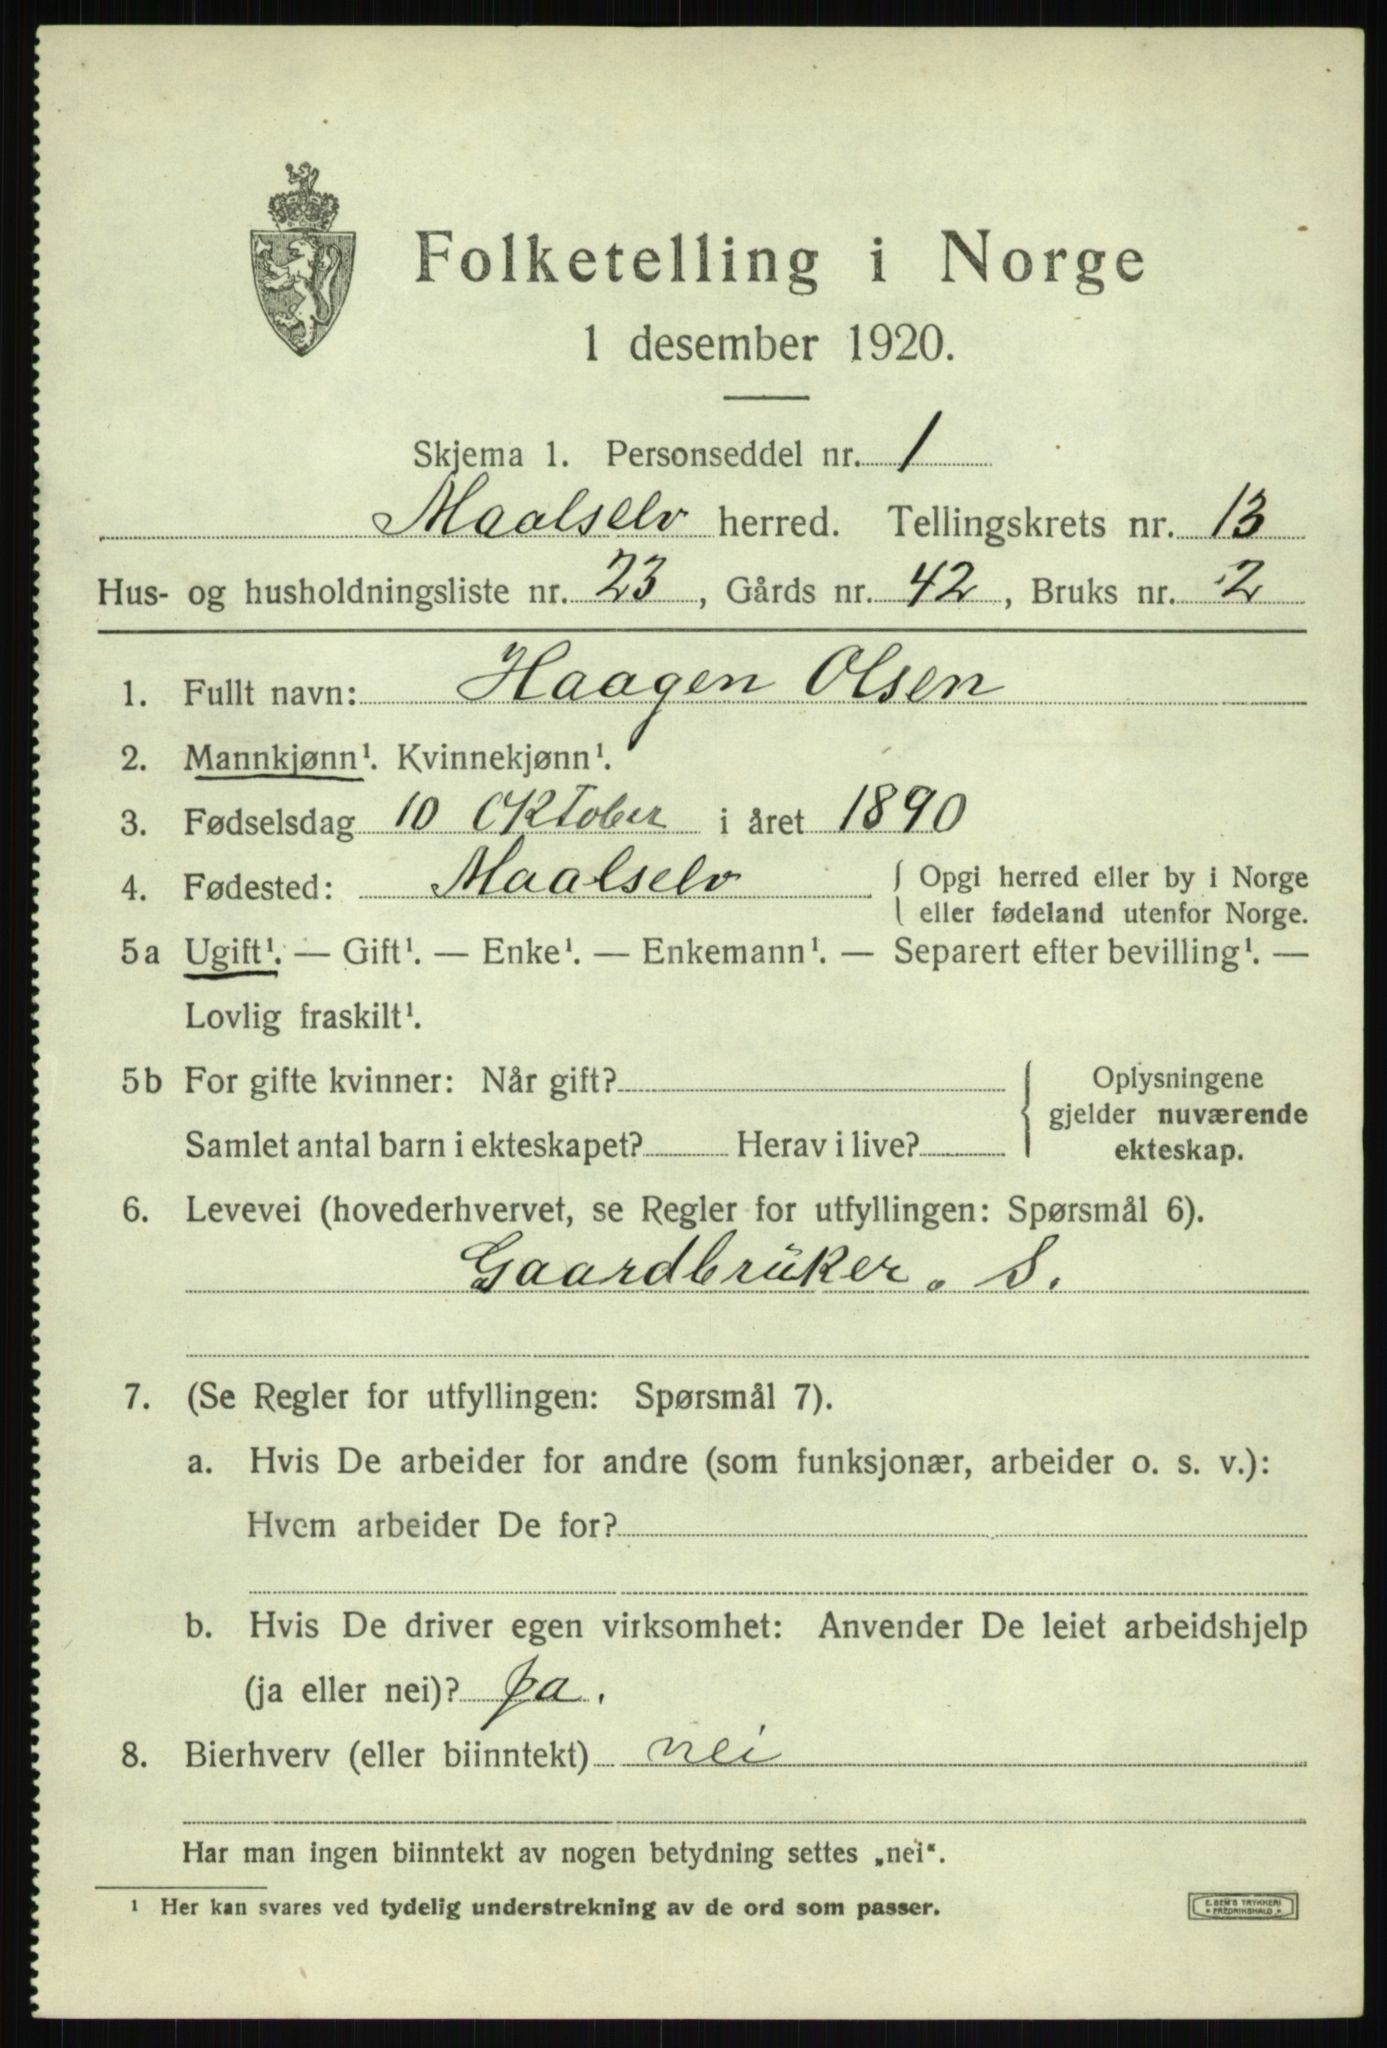 Folketelling i Norge
1 desember 1920.
Skjema 1. Personseddel nr. 1
Maalselv herred. Tellingskrets nr. 13
Hus- og husholdningsliste nr. 23, Gårds nr. 42, Bruks nr. 2
1. Fullt navn: Haagen Olsen
2. Mannkjønn¹. Kvinnekjønn¹.
3. Fødselsdag 10 Oktober i året 1890
4. Fødested: Maalselv { Opgi herred eller by i Norge
eller fødeland utenfor Norge.
5a Ugift¹. — Gift¹. — Enke¹. — Enkemann¹. — Separert efter bevilling¹. —
Lovlig fraskilt¹.
5b For gifte kvinner: Når gift? { Oplysningene
gjelder nuværende
Samlet antal barn i ekteskapet? Herav i live? ekteskap.
6. Levevei (hovederhvervet, se Regler for utfyllingen: Spørsmål 6).
Gaardbrüker. S.
7. (Se Regler for utfyllingen: Spørsmål 7).
a. Hvis De arbeider for andre (som funksjonær, arbeider o. s. v.):
Hvem arbeider De for?
b. Hvis De driver egen virksomhet: Anvender De leiet arbeidshjelp
(ja eller nei)? Ja.
8. Bierhverv (eller biinntekt) nei
Har man ingen biinntekt av nogen betydning settes „nei“.
¹ Her kan svares ved tydelig understrekning av de ord som passer.
E. SEM'S TRYKKERI
FREDRIKSHALD